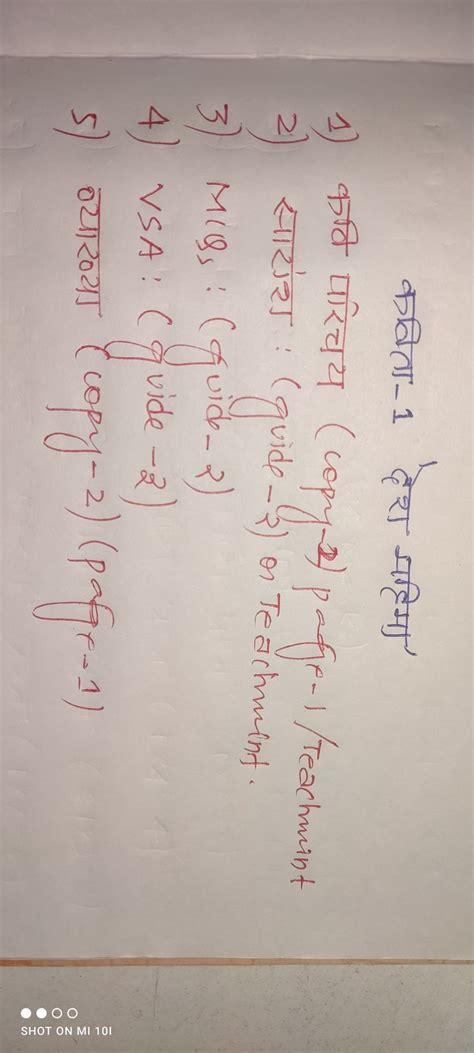 कविता-1 देश महिमा
1) कवि परिचय (copy-2) page-1/Teachmint
2) सारांश : (guide-2) on Teachmint.
3) MCQs : (guide-2)
4) VSA : (guide-2)
5) व्याख्या (copy-2) (page-1)
SHOT ON MI 10I